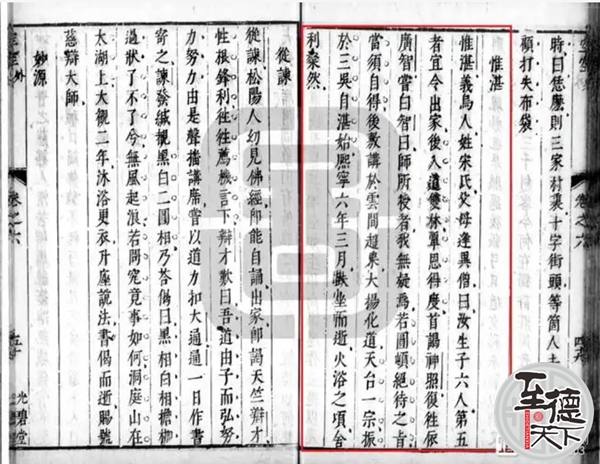 時曰恁麼則三家村裏十字街頭等箇人去
頓打失布袋
惟湛
惟湛義烏人姓宋氏父母逢異僧曰汝生子六人第五
者宜令出家後入道雙林單恩得度首謁神照復往依
廣智嘗白智曰師所授者我無疑焉若圓頓絕待之旨
當須自得後敷講於雲間超果大揚化道天台一宗振
於三吳自湛始熙寧六年三月趺坐而逝火浴之頃舍
利粲然
從諫
從諫松陽人幼見佛經即能自誦出家師謁天竺辯才
性根鋒利往往薦機言下辯才歎曰吾道由子而弘努
力努力由是聲播講席嘗以道力扣大通通一日作書
寄之諫發緘覩黑白二圓相乃答偈曰黑相白相擔枷
過狀了不了兮無風起浪若問究竟事如何洞庭山在
太湖上大觀二年沐浴更衣升座說法書偈而逝賜號
慈辯大師
妙源
卷之六
卷之六
五十
光碧堂
至德
天下